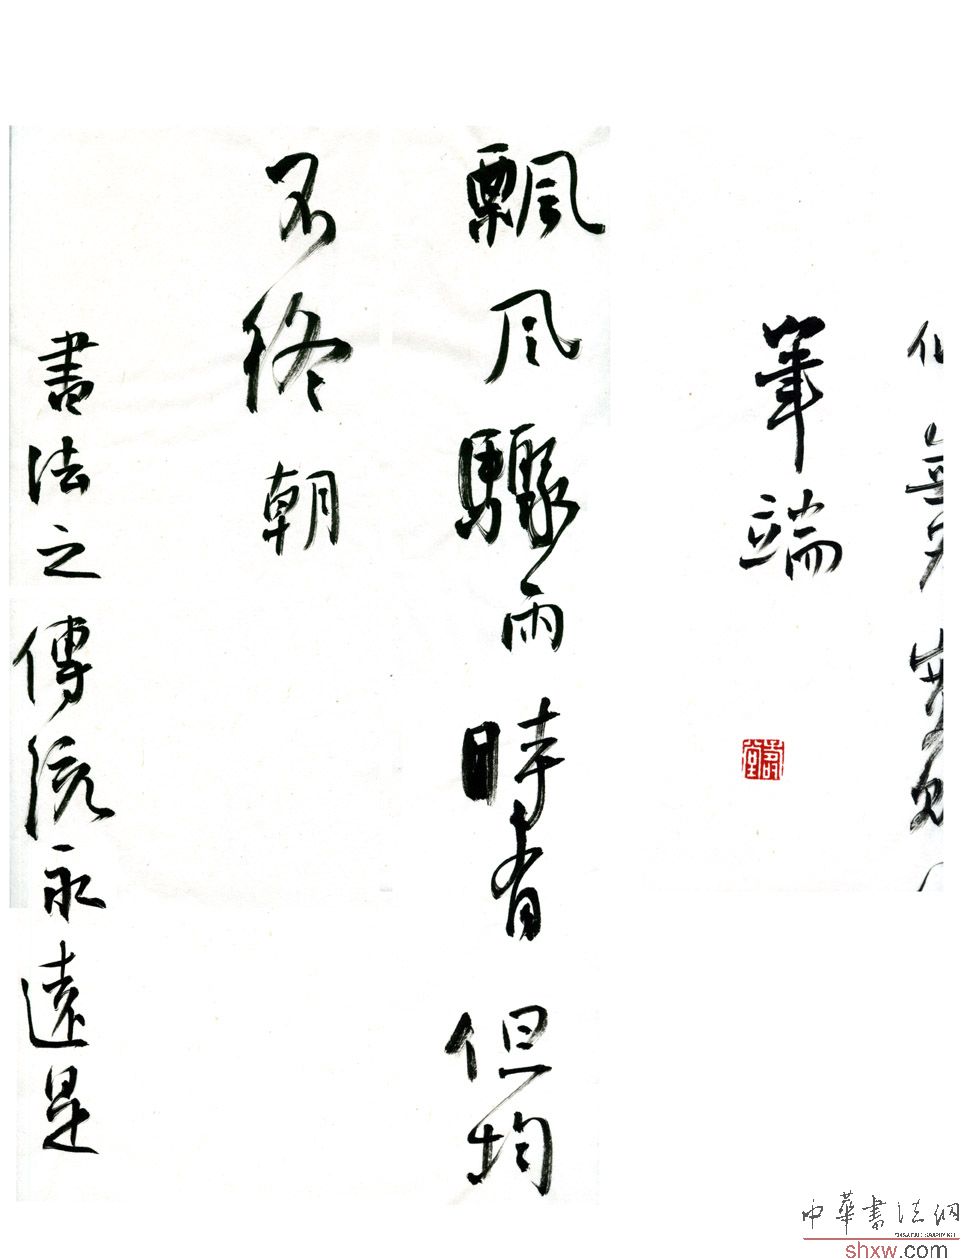 筆端
飄風驟雨時有但均
不終朝
書法之傳統永遠是
壽堂
中華書法網
shxw.com